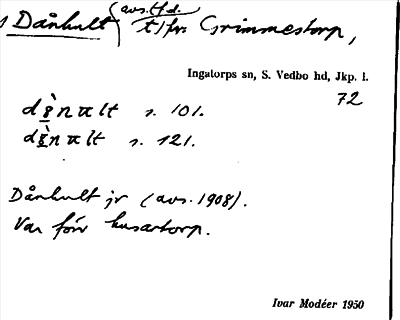 Dånhult (avs. t. f. d. t) frn Grimmestorp,
Ingatorps sn, S. Vedbo hd, Jkp. l.
72
s. 101.
s. 121.
Dånhult jr (avs. 1908).
Var förr husartorp.
Ivar Modéer 1950